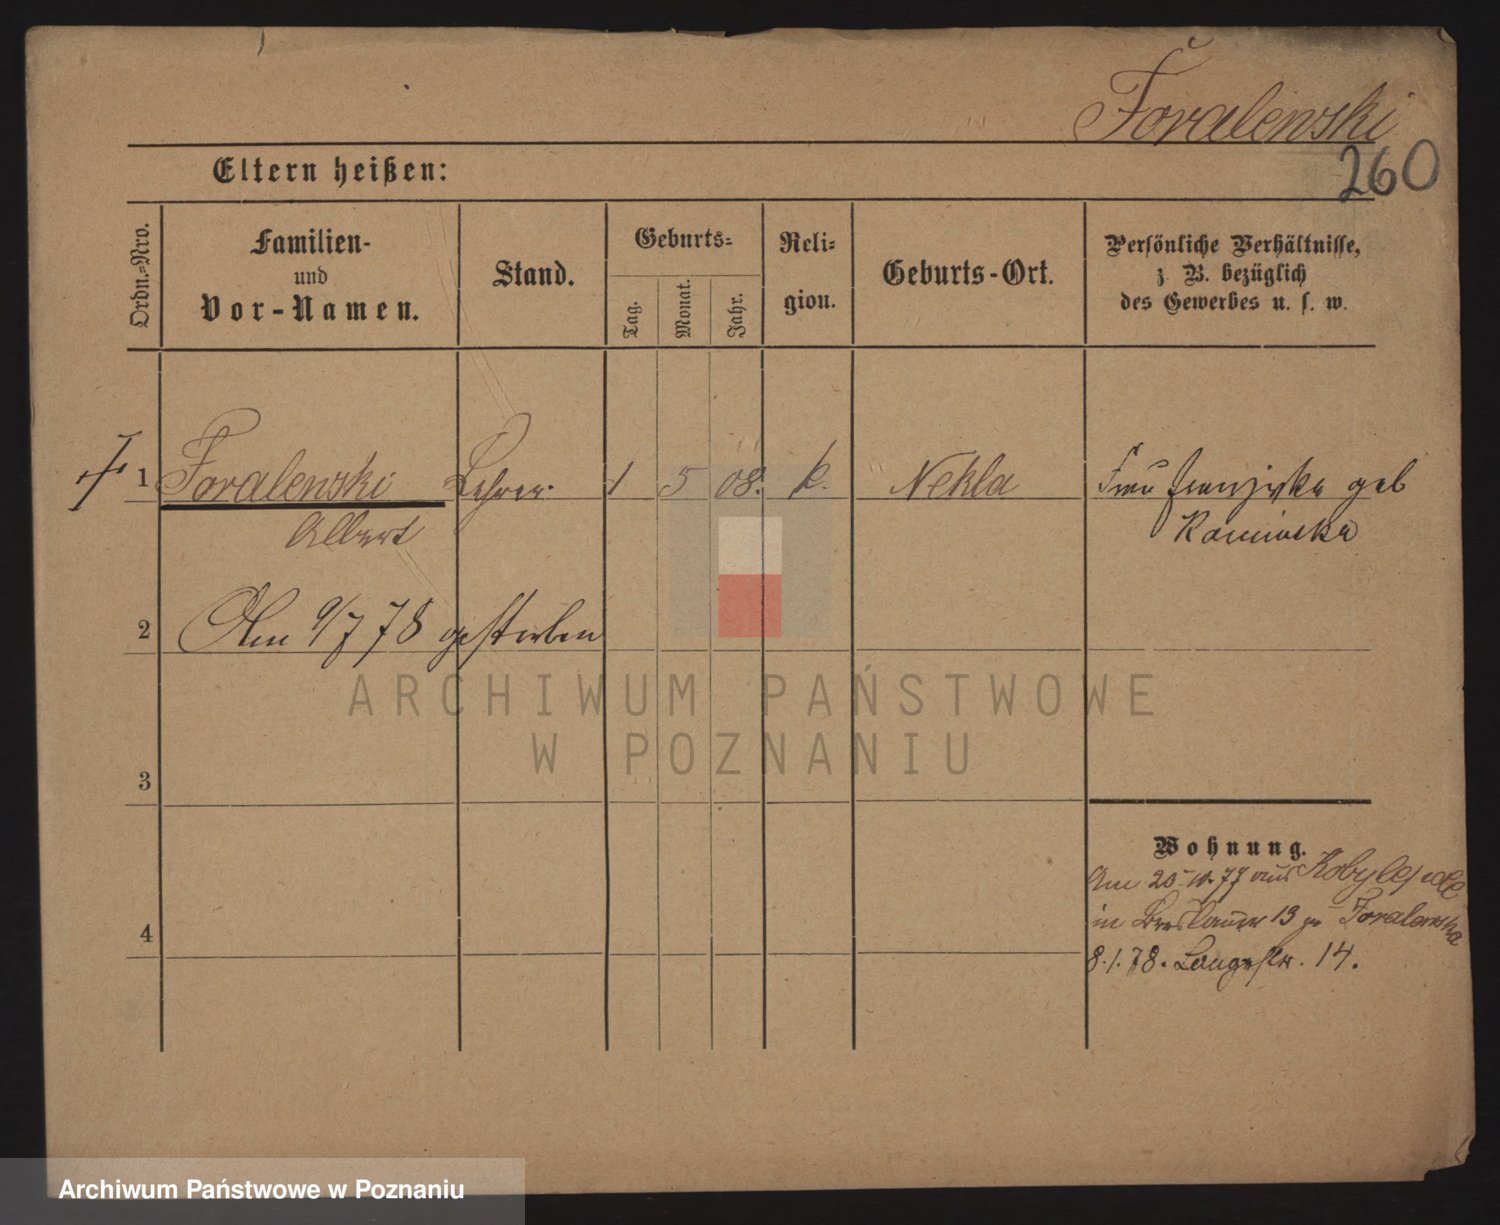 Foralewski
260
Eltern heißen:
Ordn.=Nro.
Familien-
und
Vor-Namen.
Stand.
Geburts=
Tag.
Monat.
Jahr.
Reli=
gion.
Geburts-Ort.
Persönliche Verhältnisse,
z. B. bezüglich
des Gewerbes u. s. w.
1 Foralewski Lehrer 1 5 08. k. Nekla Frau Franziska geb
Albert
2 Am 9/7 78 gestorben
3
Wohnung.
Am 25-10.77 aus
4
in Breslauer 13 zu Foralewska
8.1.78. Langestr. 14.
ARCHIWUM PAŃSTWOWE
W POZNANIU
Archiwum Państwowe w Poznaniu